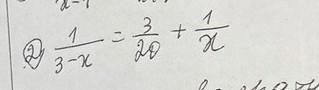 ② 1/(3-x) = 3/20 + 1/x